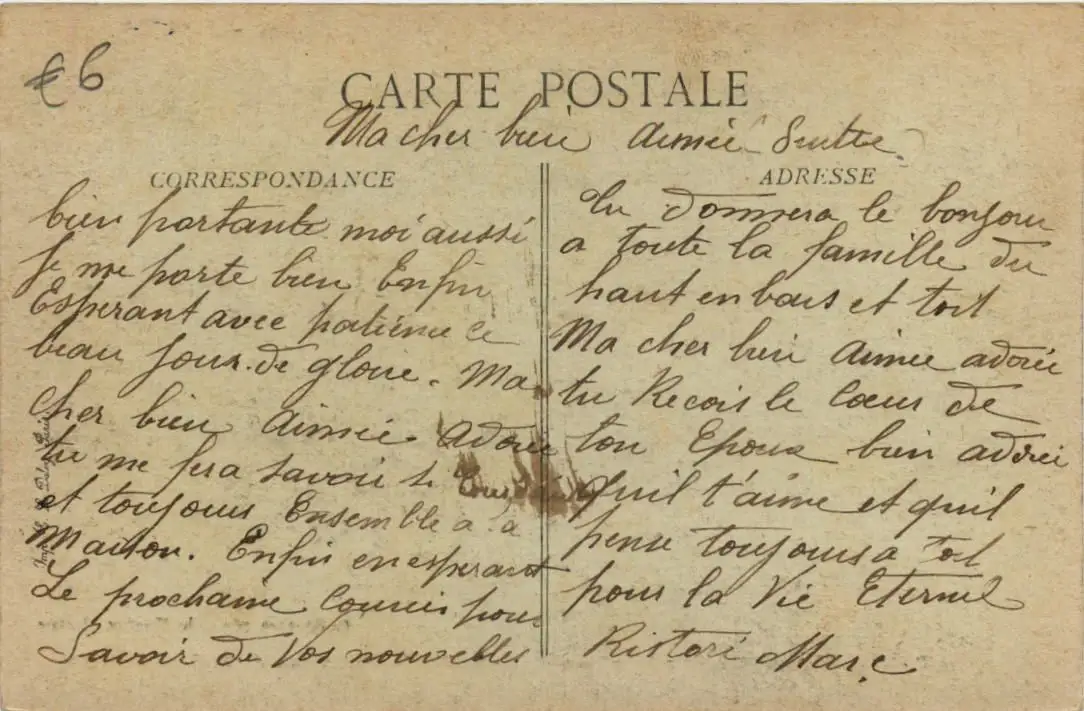 €6
CARTE POSTALE
Ma cher bien Aimée Suitte.
CORRESPONDANCE
bien portante moi aussi
Je me porte bien Enfin
Esperant avec patience ce
beau jour de gloire. Ma
cher bien Aimée Adorée
tu me fera savoir si
et toujours Ensemble a la
Maison. Enfin en esperant
Le prochaine Courrier pour
Savoir de Vos nouvelles
ADRESSE
Tu donnera le bonjour
a toute la famille du
haut en bas et toit
Ma cher bien Aimee adorée
tu Recois le Coeur de
ton Epoux bien adorée
quil t'aime et quil
pense toujours a toit
pour la Vie Eternel
Ristori Marc